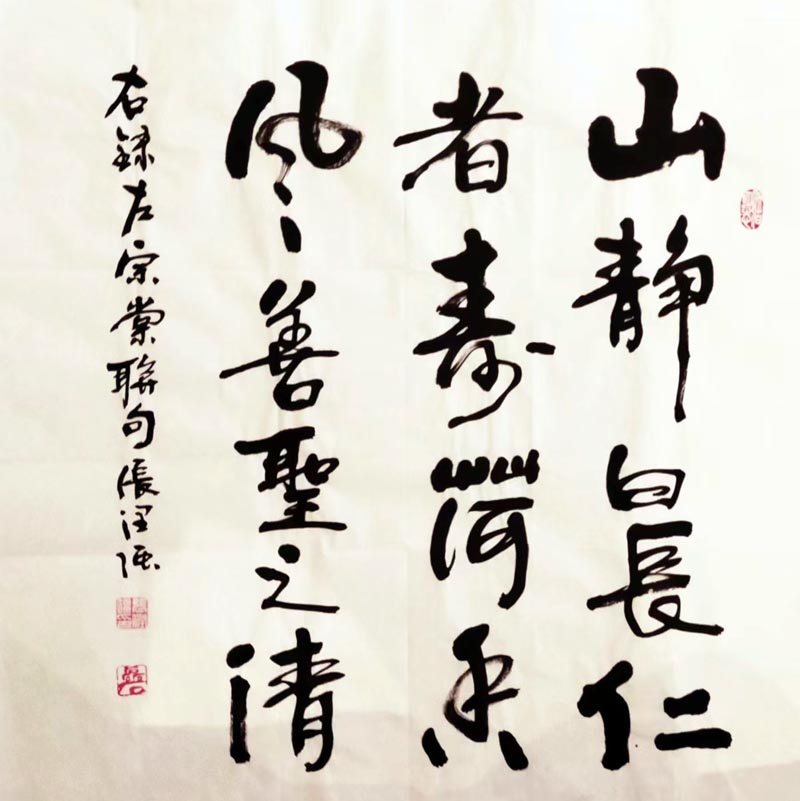 山静日長仁
者壽荷香
風善聖之清
右録左宗棠聯句張